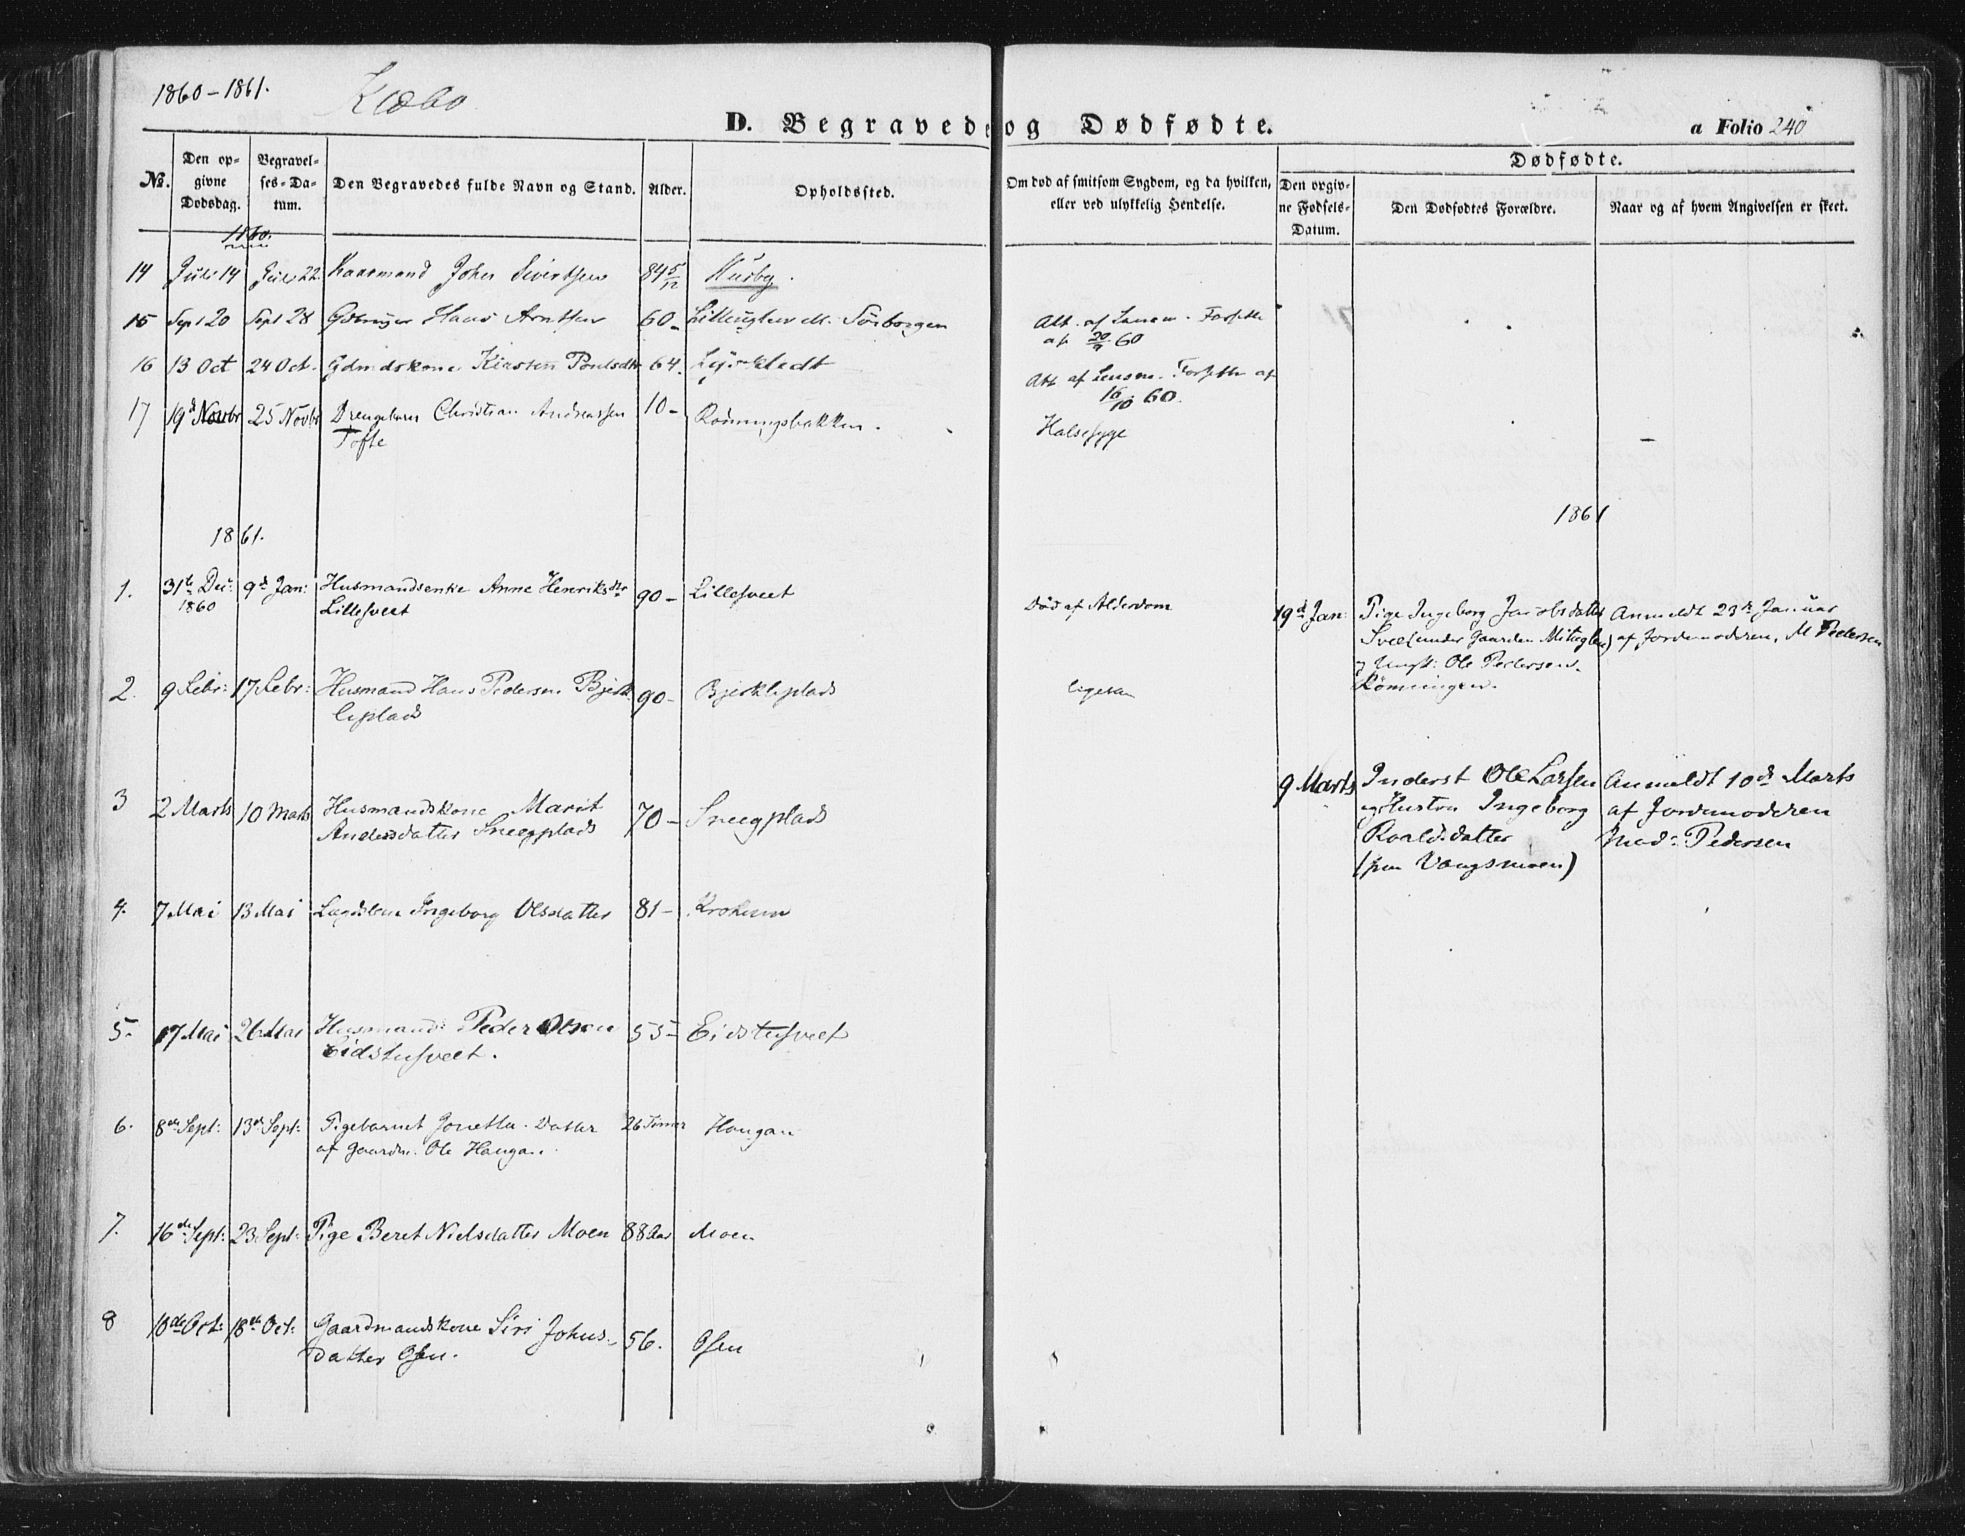 1860-1861.
Klæbo
D. Begravede og Dødfødte.
a Folio 240
No.
Den opgivne Dødsdag.
Begravelses-Datum.
Den Begravedes fulde Navn og Stand.
Alder.
Opholdssted.
Om død af smitsom Sygdom, og da hvilken, eller ved ulykkelig Hendelse.
Dødfødte.
Den opgivne Fødsels-Datum.
Den Dødfødtes Forældre.
Naar og af hvem Angivelsen er skeet.
1860.
14 Juli 14 Juli 22 Kaarmand John Sivertsen 84 5/12 Husby.
15 Sept 20 Sept 28 Hans Arntsen 60- Sørborgen
Att. af Forseth
af 20/9 60
16 13 Oct 24 Oct. Gdmdskone Kirsten Poulsdtr 64.
Att af Lensm. Forseth af
16/10 60.
17 19d Novbr 25 Novbr Drengebarn Christian Andreassen 10- Rønningsbakken.
Tofte
Halsesyge
1861.
1861
1. 31te Dec: 9d Jan: Husmandsenke Anne Henriksdtr 90- Lillesveet
1860 Lillesveet
Død af Alderdom
19d Jan: Pige Ingeborg Jacobsdatter Anmeldt 23de Januar
Svee (under Gaarden Mitugleu) af Jordemoderen, M Pedersen
og Ungk: Ole Pedersen.
Rönningen.
2. 9 Febr: 17 Febr: Husmand Hans Pedersen Bjerk- 90- Bjerkliplads
liplads
ligesaa
3 2 Marts 10 Marts Husmandskone Marit 70- Sneegplads
Andersdatter Sneegplads
9 Marts Inderst Ole Larsen Anmeldt 10de Marts
og Hustru Ingeborg af Jordemoderen
Roaldsdatter Mad: Pedersen
(paa Vangsmoen)
4. 7 Mai 13 Mai Lægdslem Ingeborg Olsdatter 81-
5. 17 Mai 26 Mai Husmand: Peder Olsen 55- Eidstusveet
Eidstusveet.
6. 8de Sept: 13de Sept: Pigebarnet Jonetta. Datter 26 Timer Haugan
af Gaardm. Ole Haugan.
7. 16de Sept: 23 Sept: Pige Beret Nielsdatter Moen 88 Aar Moen
8 10de Oct: 18de Oct: Gaardmandskone Siri Johns- 56. Osen
datter Osen.